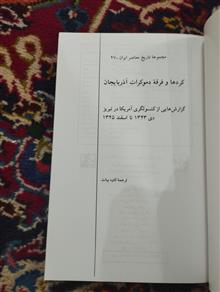 مجموعهٔ تاریخ معاصر ایران ـ ۲۷
کردها و فرقهٔ دموکرات آذربایجان
گزارش‌هایی از کنسولگری آمریکا در تبریز
دی ۱۳۲۳ تا اسفند ۱۳۲۵
ترجمهٔ کاوه بیات